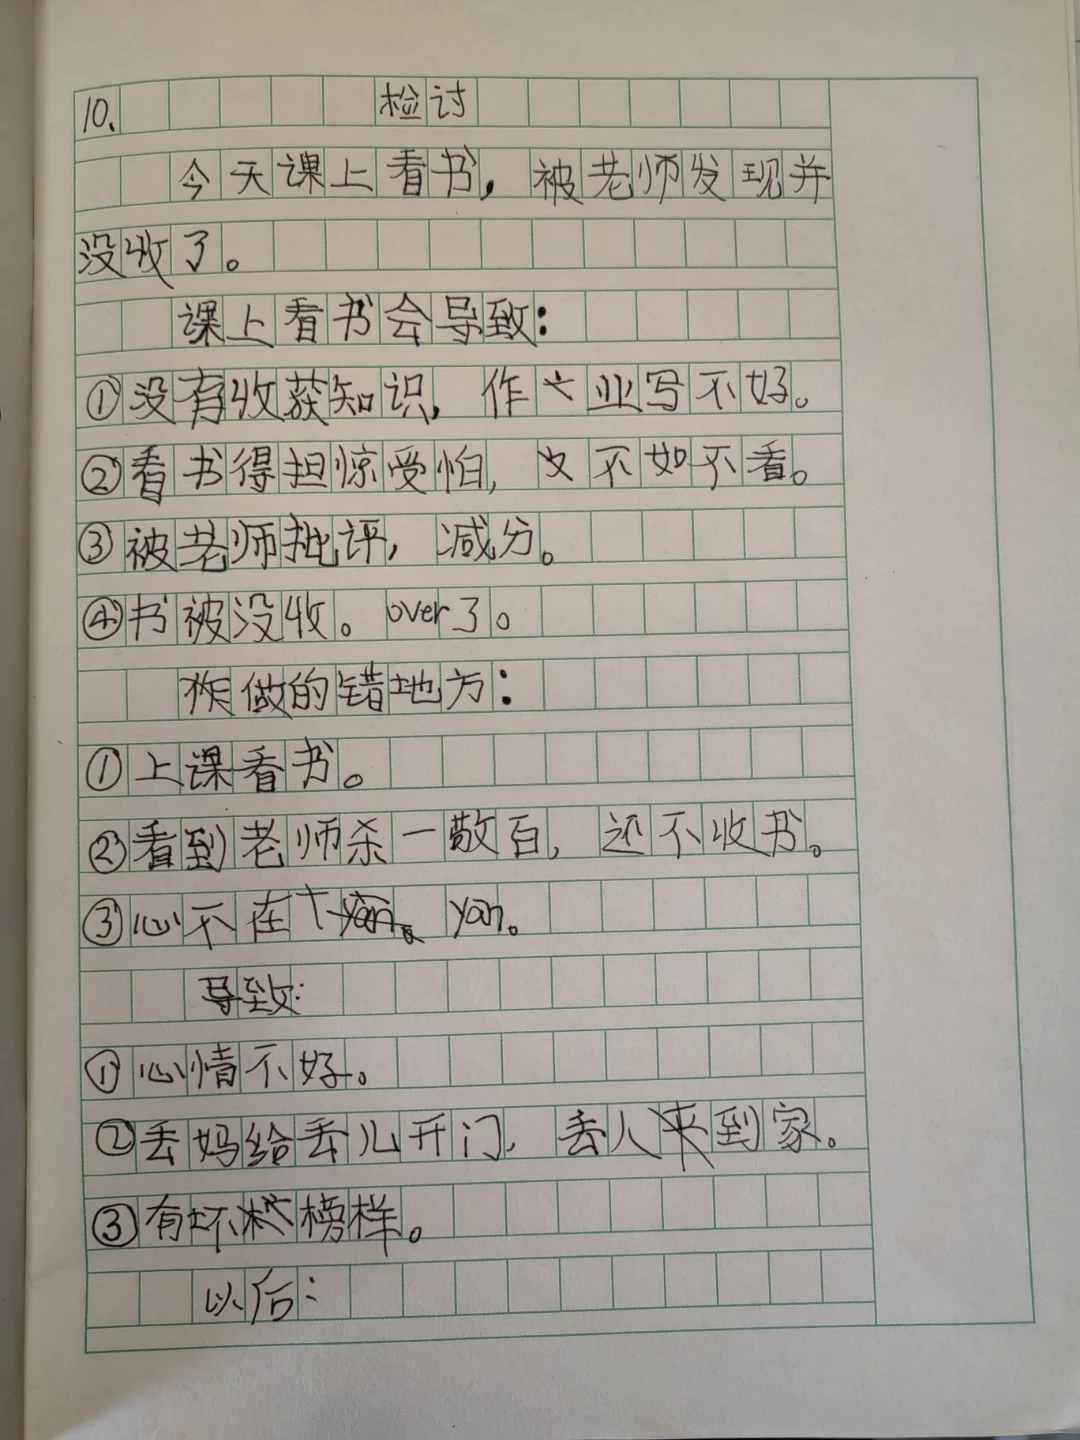 10. 检讨
今天课上看书，被老师发现并
没收了。
课上看书会导致：
①没有收获知识，作业写不好。
②看书得担惊受怕，又不如不看。
③被老师批评，减分。
④书被没收。over了。
做的错地方：
①上课看书。
②看到老师杀一敬百，还不收书。
③心不在yan。
导致：
①心情不好。
②丢妈给丢儿开门，丢人来到家。
③有坏榜样。
以后：